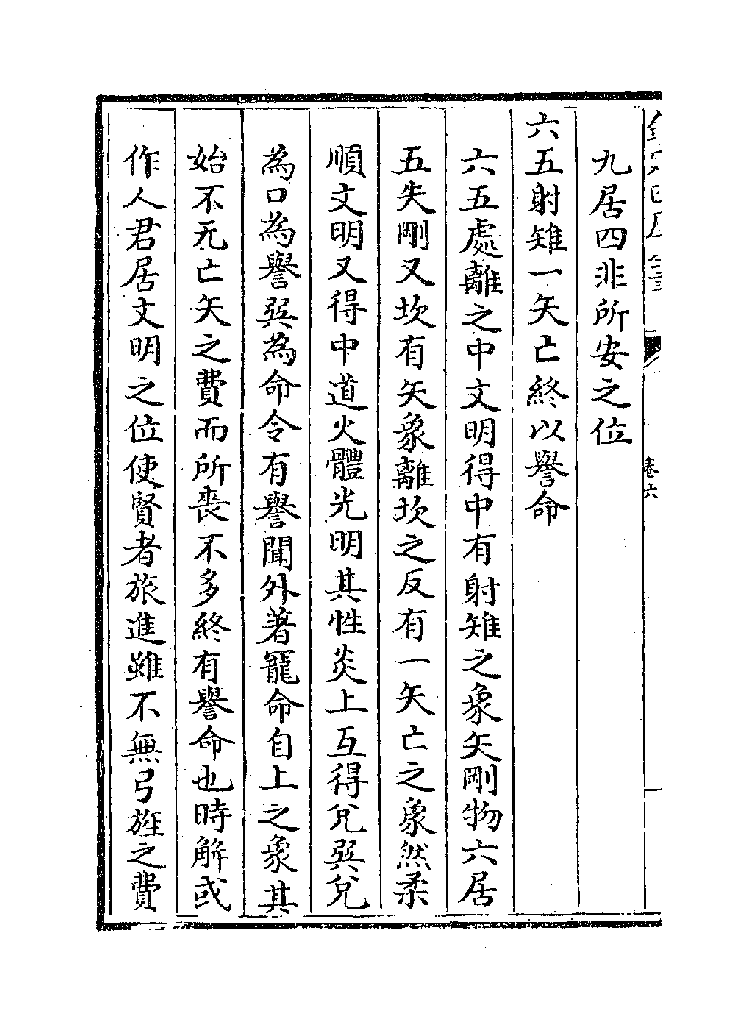 九居四非所安之位
六五射雉一矢亡終以譽命
六五處離之中文明得中有射雉之象矢剛物六居
五失剛又坎有矢象離坎之反有一矢亡之象然柔
順文明又得中道火體光明其性炎上互得兌巽兌
為口為譽巽為命令有譽聞外著寵命自上之象其
始不无亡矢之費而所喪不多終有譽命也時解或
作人君居文明之位使賢者旅進雖不無弓旌之費
卷六